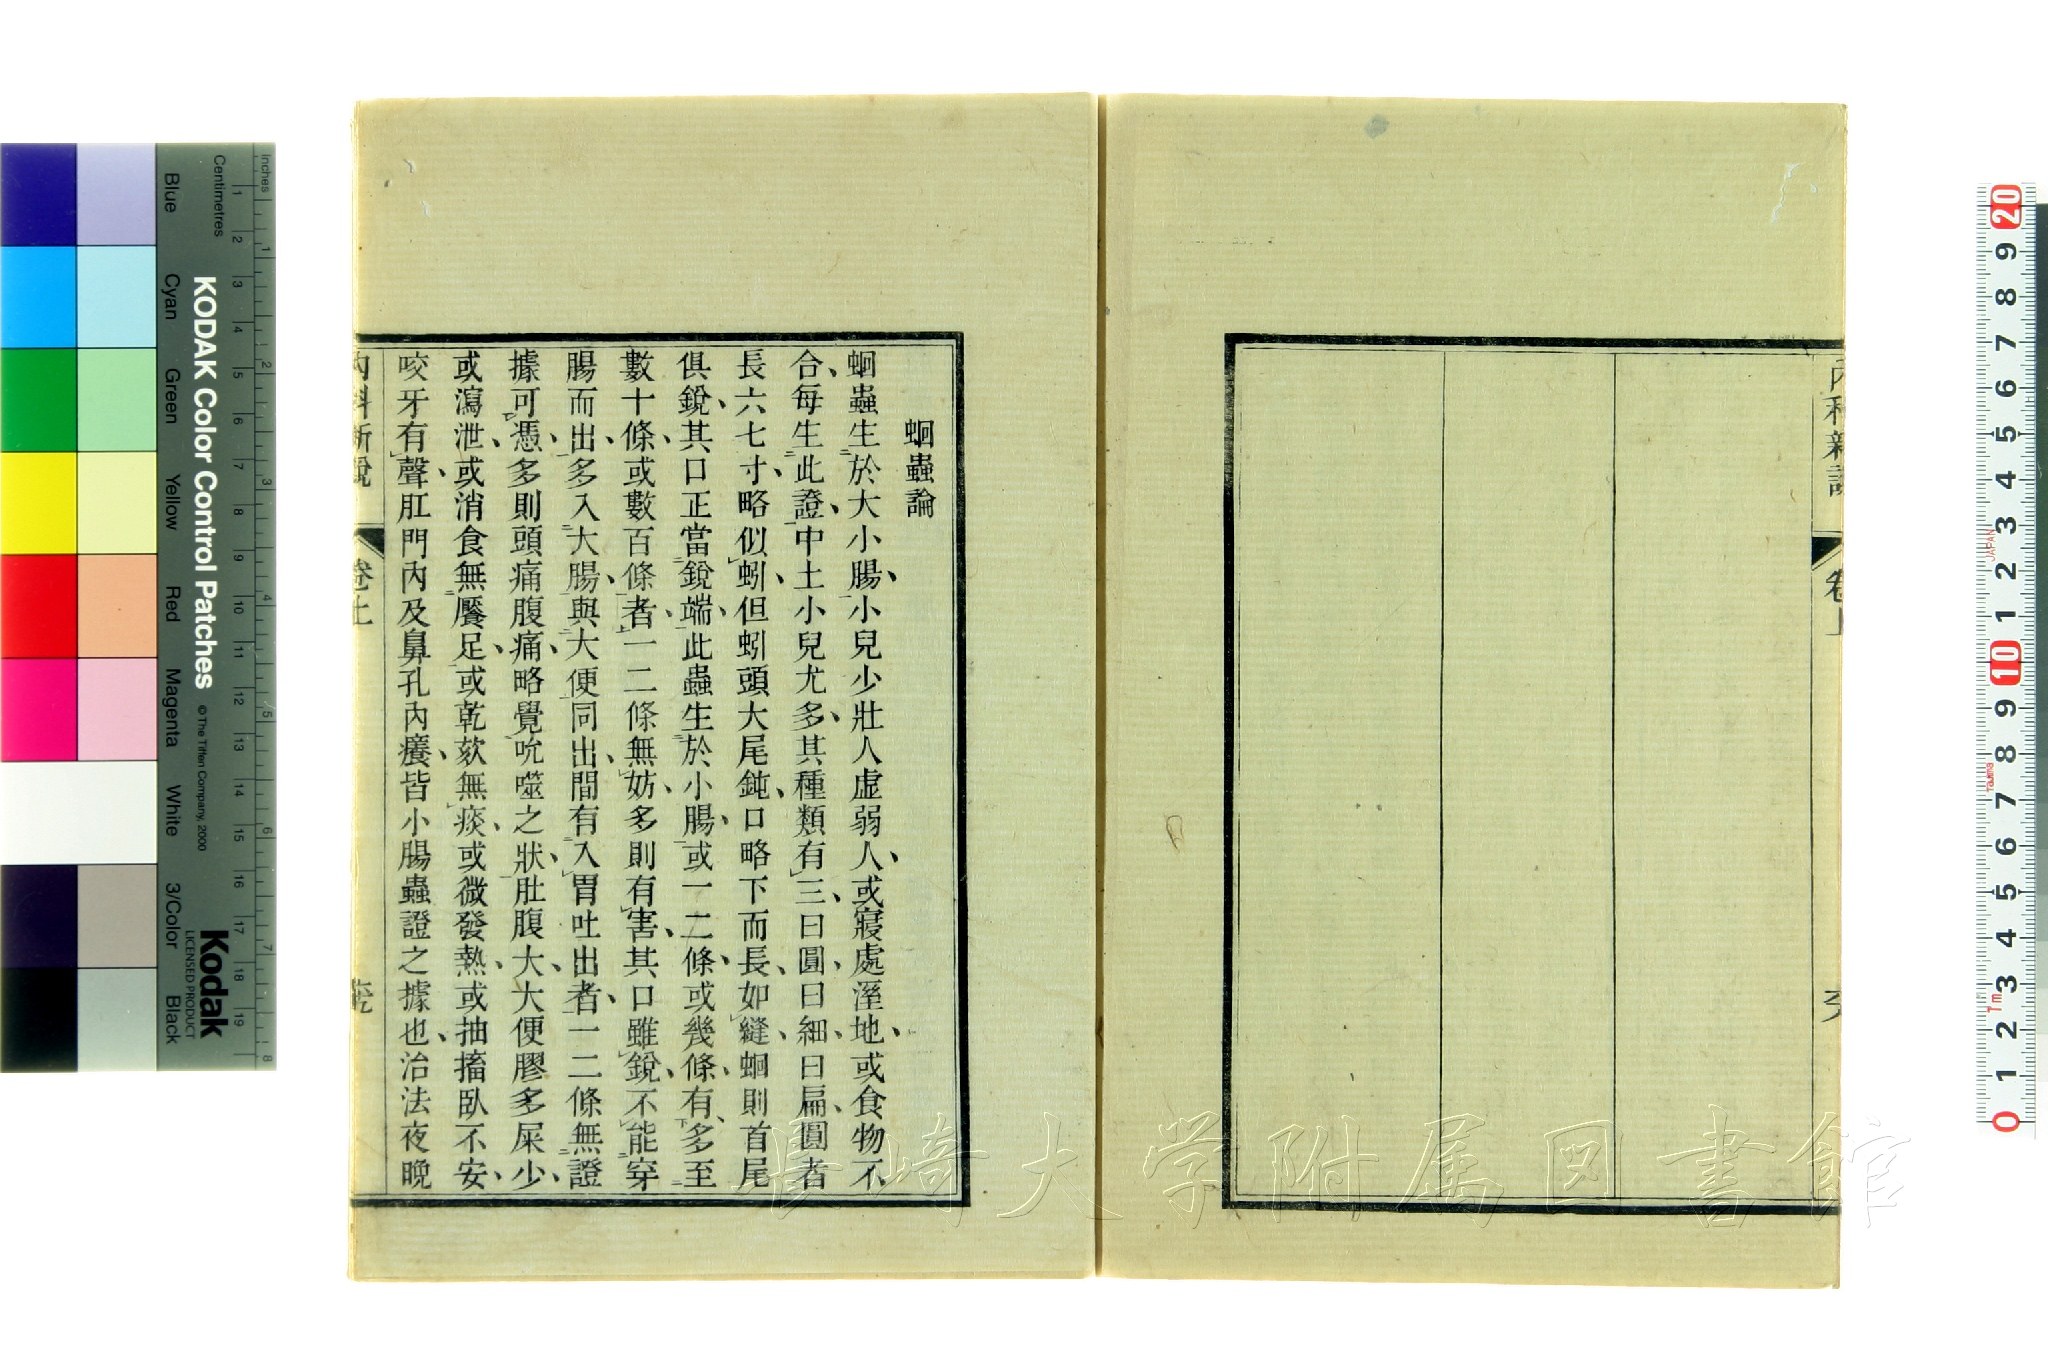 蛔蟲論
蛔蟲生於大小腸、小兒少壯人虛弱人、或寢處溼地、或食物不
合、每生此證、中土小兒尤多、其種類有三、曰圓、曰細、曰扁、圓者
長六七寸、略似蚓、但蚓頭大尾鈍、口略下而長、如縫、蛔則首尾
俱銳、其口正當銳端、此蟲生於小腸、或一二條、或幾條、有多至
數十條、或數百條者、一二條無妨、多則有害、其口雖銳、不能穿
腸而出、多入大腸、與大便同出、間有入胃吐出者、一二條無證
據可憑、多則頭痛腹痛、略覺吮噬之狀、肚腹大、大便膠多屎少、
或瀉泄、或消食無饜足、或乾欬無痰、或微發熱、或抽搐臥不安、
咬牙有聲、肛門內及鼻孔內癢、皆小腸蟲證之據也、治法夜晚
內科新說
卷上
內科新說
卷上
KODAK Color Control Patches
© The Tiffen Company, 2000
Kodak
LICENSED PRODUCT
Inches
Centimetres
Blue
Cyan
Green
Yellow
Red
Magenta
White
3/Color
Black
1 2 3 4 5 6 7 8 9 10 11 12 13 14 15 16 17 18 19
1 2 3 4 5 6 7 8
20 9 8 7 6 5 4 3 2 1 10 9 8 7 6 5 4 3 2 1 0
JAPAN
Tajima
長崎大学附属図書館